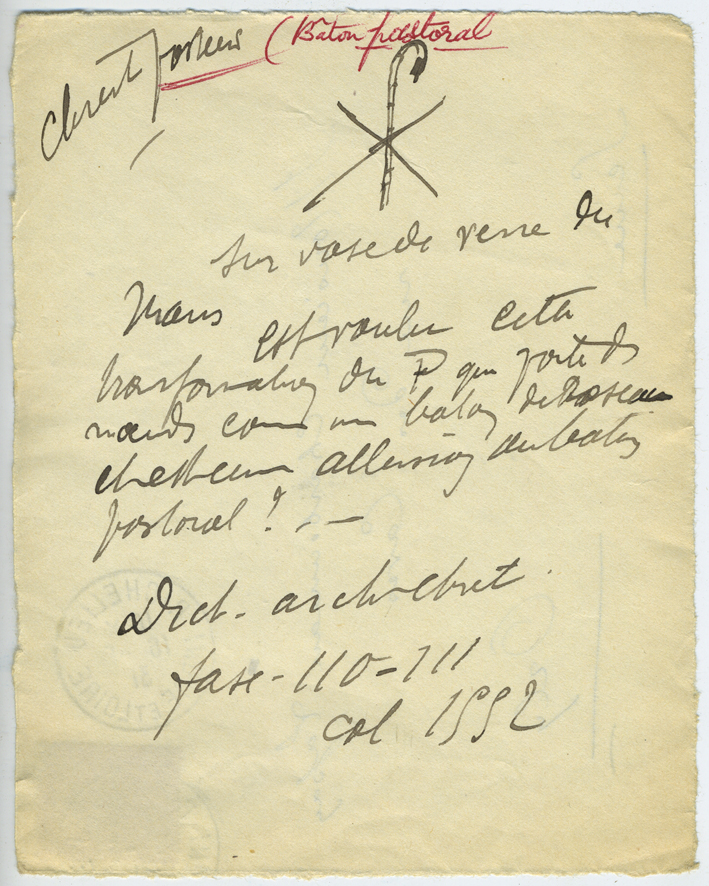 Christ pasteur (Bâton pastoral
Sur vase de verre du
Mans
est voulu cette
transformation du P qui porte des
nœuds comme un baton de Roseau
allusion au baton
pastoral ? . —
Dict. arch chret .
fasc - 110 - 111
col 1552